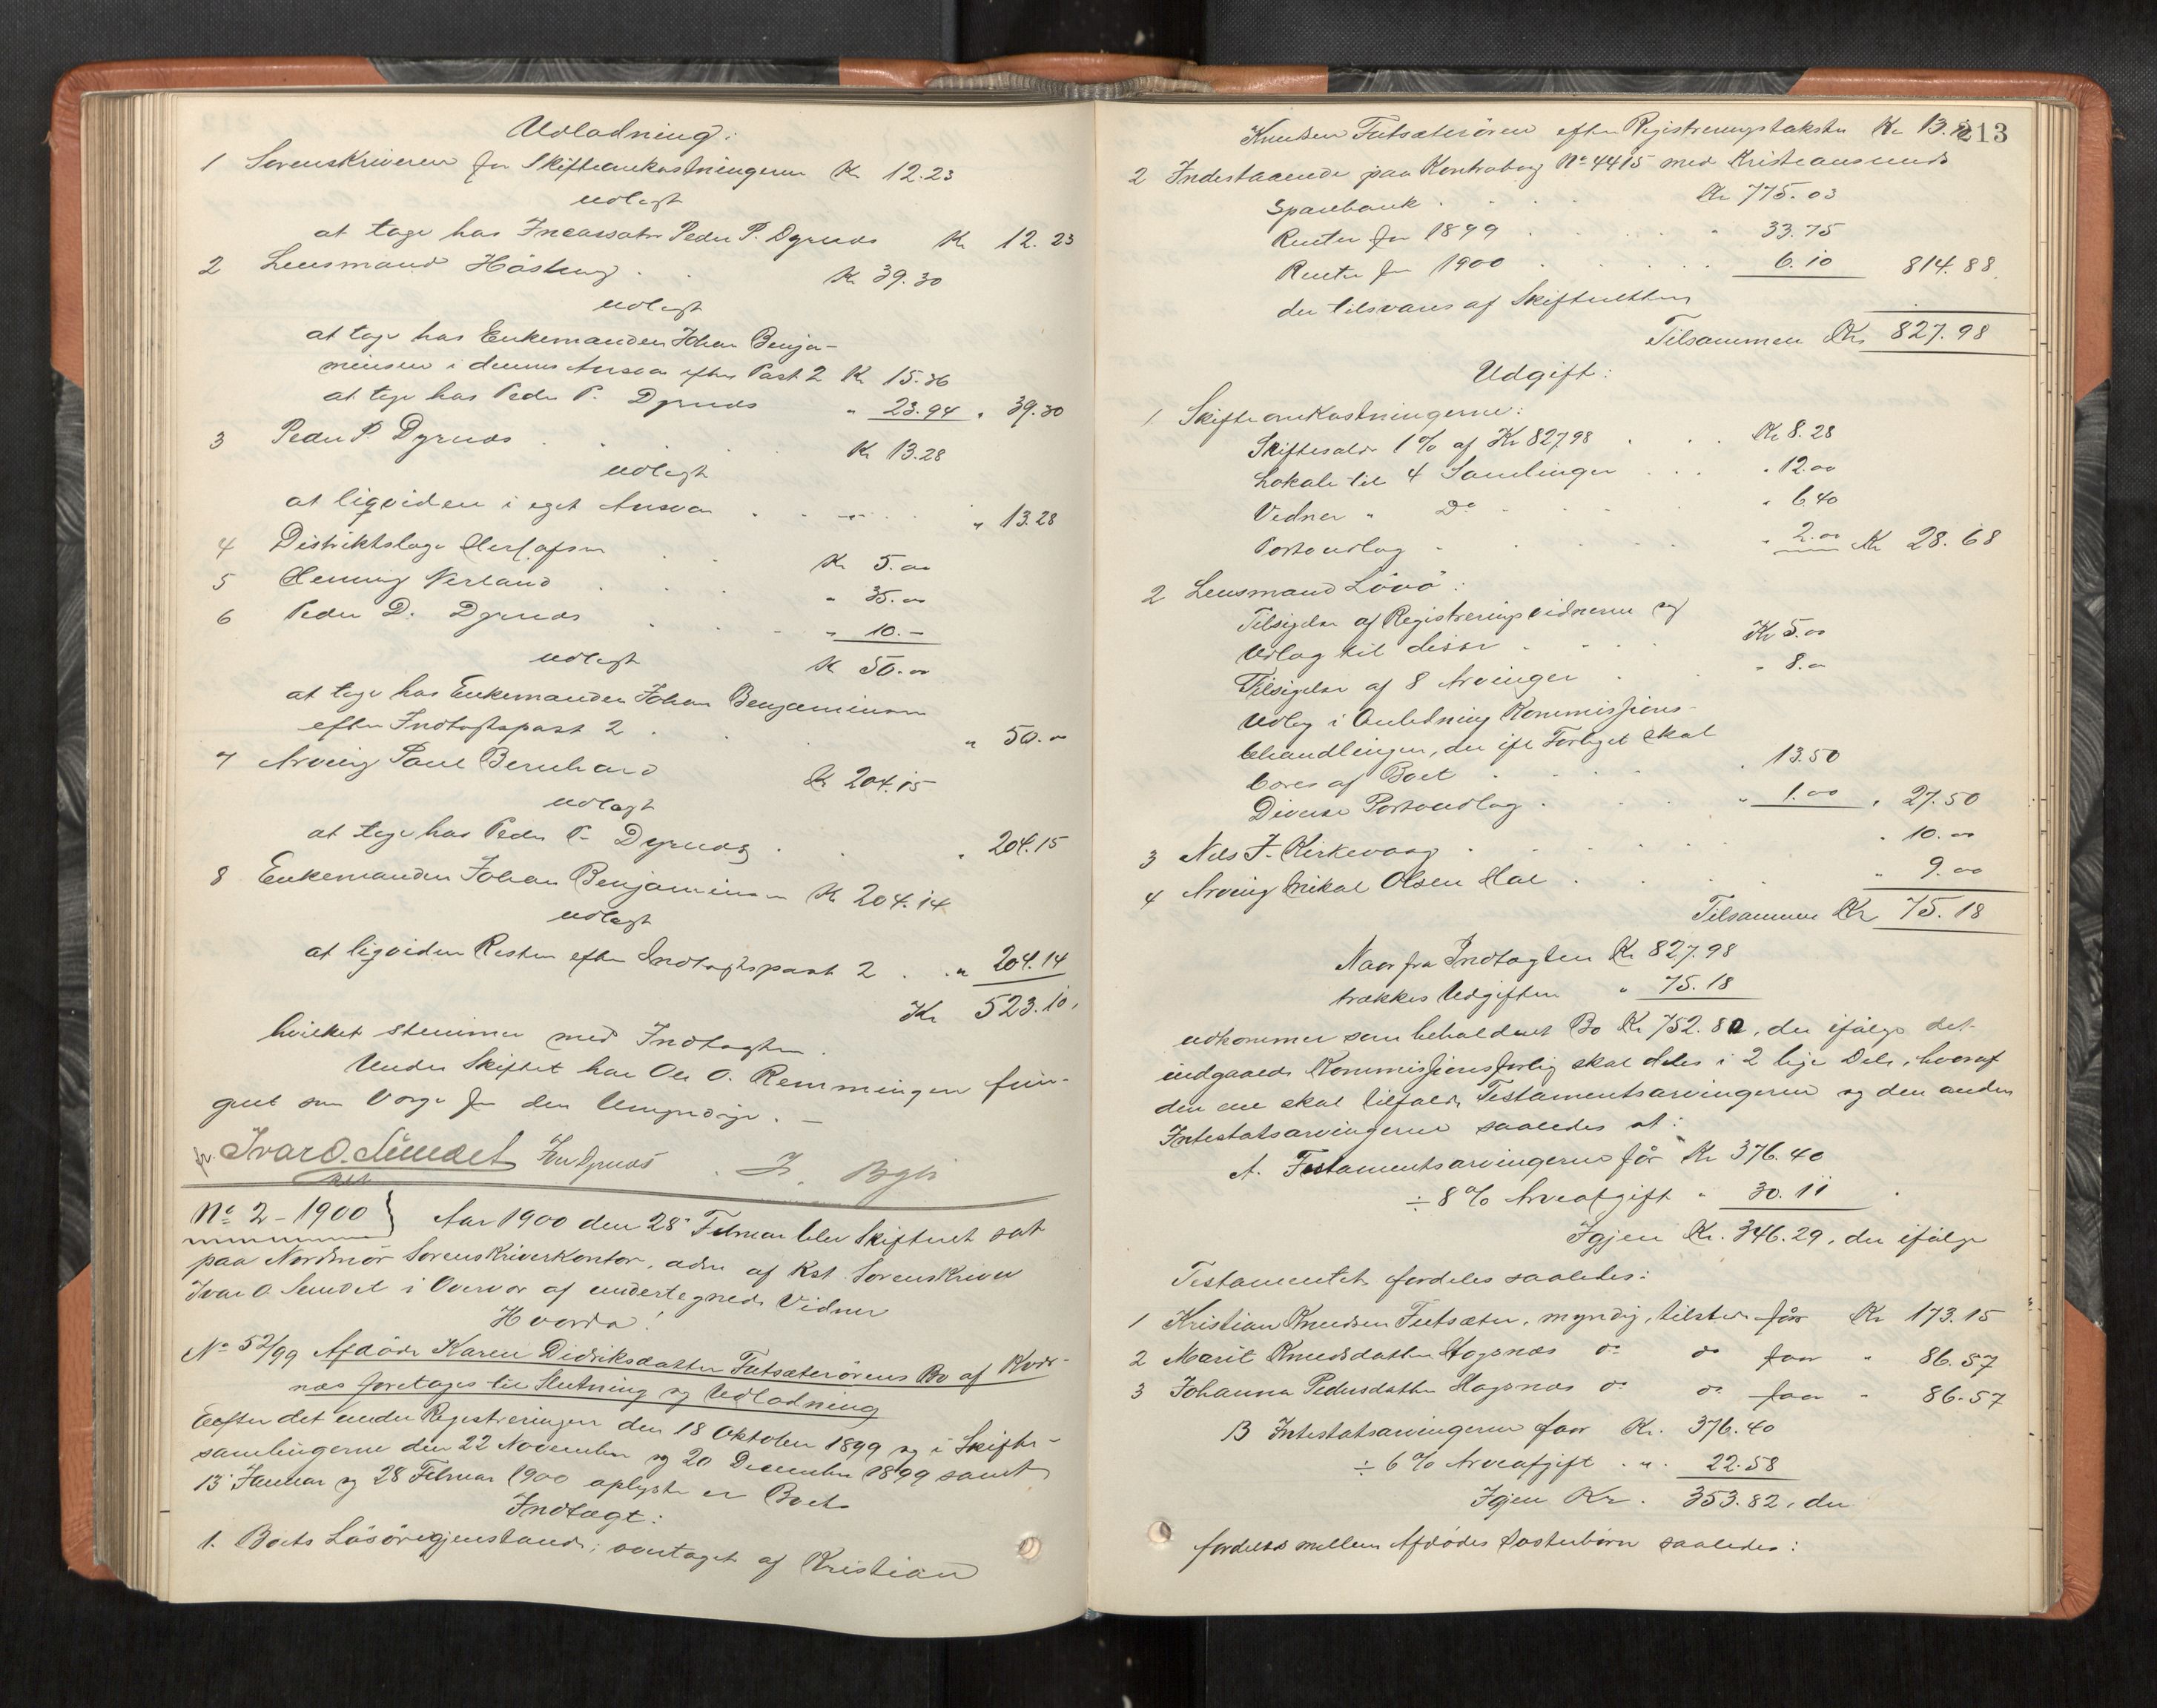 Udlodning:
1 Sorenskriveren for Skifteomkostningerne Kr 12.23
udlagt
at tage hos Incassator Peder P. Dyrnæs Kr 12.23
2 Lensmand Kr 39.30
udlagt
at tage hos Enkemanden Johan Benja-
minsen i dennes Ansvar efter Post 2 Kr 15.36
at tage hos Peder P. Dyrnæs " 23.94 " 39.30
3 Peder P Dyrnæs Kr 13.28
udlagt
at ligvidere i eget Ansvar " 13.28
4 Distriktslæge Kr 5.00
5 Henning " 35.00
6 Peder D. Dyrnæs " 10.-
udlagt Kr 50.00
at tage hos Enkemanden Johan Benjaminsen
efter Indtægtspost 2 " 50.00
7 Arving Paul Bernhard Kr 204.15
udlagt
at tage hos Peder P. Dyrnæs " 204.15
8 Enkemanden Johan Benjaminsen Kr 204.14
udlagt
at ligvidere Resten efter Indtægtspost 2 " 204.14
Kr 523.10.
hvilket stemmer med Indtægten.
Under Skiftet har Ole O. Remmingen fun-
geret som Værge for den Umyndige. —
Ivar O. Sendet
No 2 - 1900 } Aar 1900 den 28' Februar blev Skifteret sat
paa Nordmør Sorenskriverkontor, adm af Kst. Sorenskriver
Ivar O. Sendet i Overvær af undertegnede Vidner
Hvorda!
No 52/99 Afdøde Karen Didriksdatter Futsæterørens Bo af Kvær-
næs foretages til Slutning og Udlodning
Efter det under Registreringen den 18 Oktober 1899 og i Skifte-
samlingerne den 22 November og 20 December 1899 samt
13' Januar og 28 Februar 1900 oplyste er Boets
Indtægt:
1. Boets Løsøregjenstande, overtaget af Kristian
213
Knudsen Futsæterøren efter Registreringstaksten Kr 13.10
2 Indestaaende paa Kontrabog No 4415 med Kristiansunds
Sparebank Kr 775.03
Renter for 1899 " 33.75
Renter for 1900 " 6.10 814.88
der tilsvares af Skifteretten
Tilsammen Kr 827.98
Udgift:
1 Skifteomkostningerne:
Skiftesalær 1% af Kr 827.98 Kr 8.28
Lokale til 4 Samlinger " 12.00
Vidner " Do " 6.40
Portoudlæg " 2.00 Kr 28.68
2 Lensmand Løvø:
Tilsigelse af Registreringsvidnerne og
Udlæg til disse Kr 5.00
Tilsigelse af 8 Arvinger " 8.00
Udlæg i Anledning Kommissions-
behandlingen, der ifl Forliget skal
bæres af Boet " 13.50
Diverse Portoudlæg " 1.00 " 27.50
3 Nils J. Kirkevaag " 10.00
4 Arving Mikal Olsen Hal " 9.00
Tilsammen Kr 75.18
Naar fra Indtægten Kr 827.98
trækkes Udgiften " 75.18
udkommer som beholdent Bo Kr 752.80, der ifølge det
indgaaede Kommissionsforlig skal deles i 2 lige Dele, hvoraf
den ene skal tilfalde Testamentsarvingerne og den anden
Intestatsarvingerne saaledes at:
A. Testamentsarvingerne får Kr 376.40
÷ 8% Arveafgift " 30.11
Igjen Kr. 346.29, der ifølge
Testamentet fordeles saaledes:
1 Kristian Knudsen Futsæter, myndig, tilstede får Kr 173.15
2 Marit Knudsdatter Hagsnæs do do faar " 86.57
3 Johanna Pedersdatter Hagsnæs do do faar " 86.57
B Intestatsarvingerne faar Kr. 376.40
÷ 6% Arveafgift " 22.58
Igjen Kr. 353.82, der
fordeles mellem Afdødes Søsterbørn saaledes: